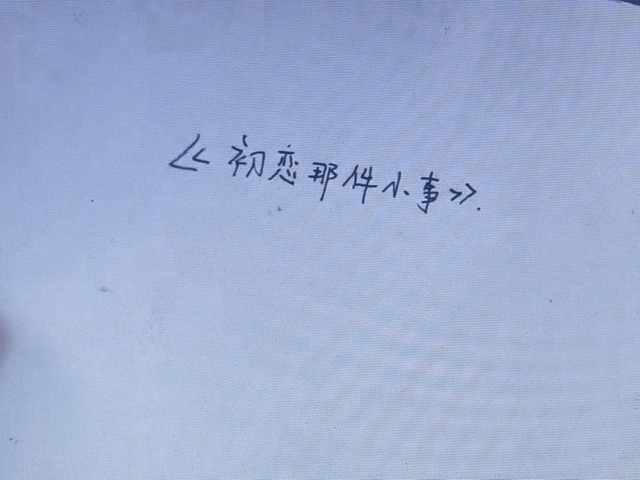 《初恋那件小事》.